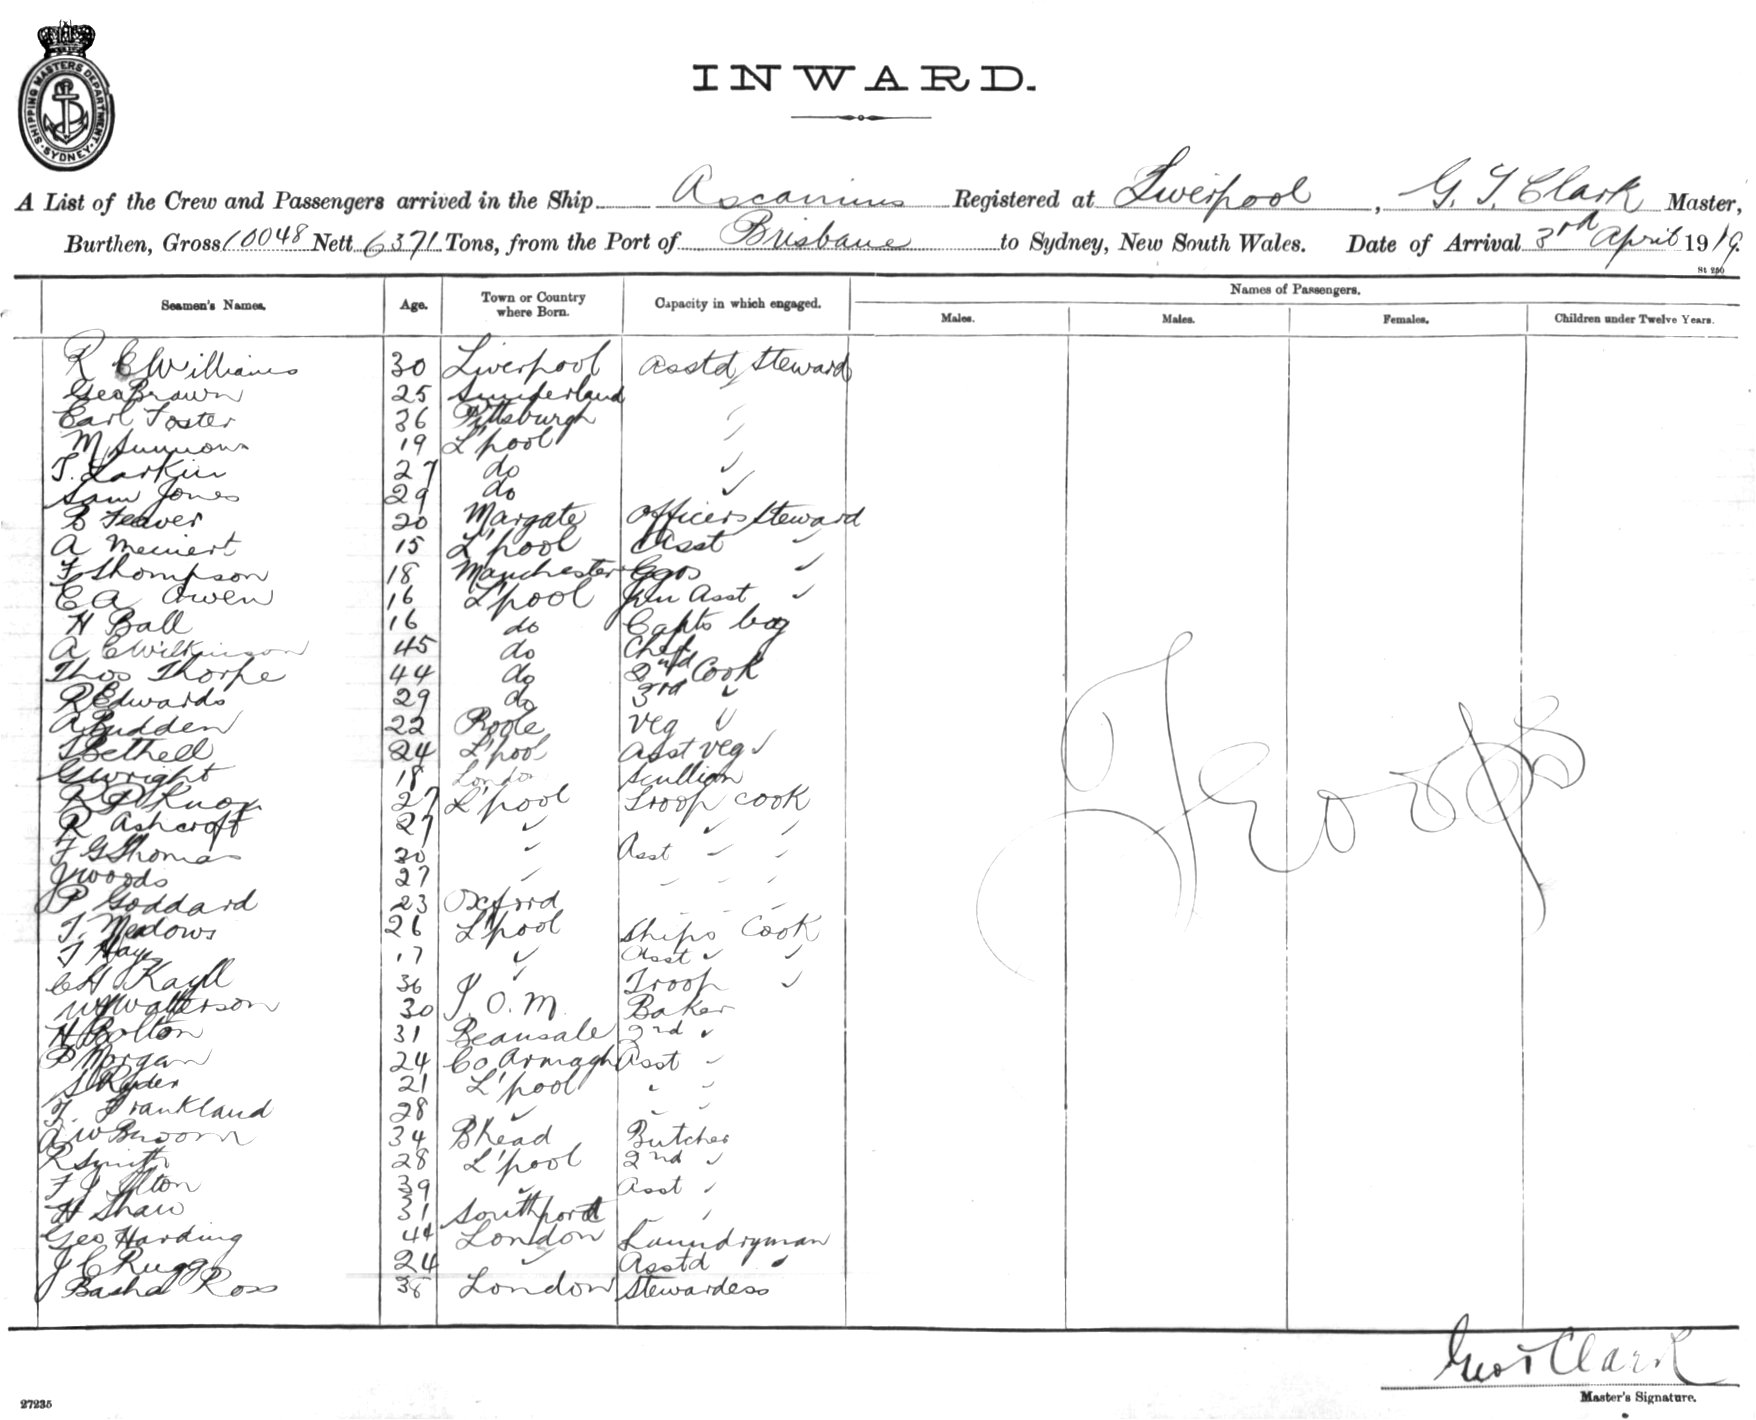 SHIPPING MASTERS DEPARTMENT. SYDNEY.
INWARD.
A List of the Crew and Passengers arrived in the Ship Ascanius Registered at Liverpool, G. T. Clark Master,
Burthen, Gross 10048 Nett 6371 Tons, from the Port of Brisbane to Sydney, New South Wales. Date of Arrival 3rd April 1919.
St 250
Seamen's Names. Age. Town or Country where Born. Capacity in which engaged. Names of Passengers.
Males. Males. Females. Children under Twelve Years.
R C Williams 30 Liverpool Asstd Steward
Geo Brown 25 Sunderland
Earl Foster 36 Pittsburgh "
M 19 L'pool "
T. Larkin 27 do "
Sam Jones 29 do "
B Feaver 20 Margate Officers Steward
A Meinert 15 L'pool Asst "
F Thompson 18 Manchester "
C A Owen 16 L'pool Asst "
H Ball 16 do Capts boy
A C Wilkinson 45 do Chef
Thos Thorpe 44 do 2nd Cook
R Edwards 29 do 3rd "
A Budden 22 Poole Veg "
Bethell 24 L'pool Asst Veg "
G Wright 18 London Scullion
R P Knox 27 L'pool Troop Cook
R Ashcroft 27 " " "
F G Thomas 30 " Asst " "
J Woods 27 " " " "
P Goddard 23 Oxford " " "
T. Meadows 26 L'pool Ships Cook
T Hay 17 " Asst " "
C H Kayll 36 " Troop "
Watterson 30 I. O. M. Baker
H Bolton 31 Beausale 2nd "
P Morgan 24 Co Armagh Asst "
S Ryder 21 L'pool " "
T. Frankland 28 " " "
A W Broom 34 B'head Butcher
R Smith 28 L'pool 2nd "
F J Ilton 39 " Asst "
H Shaw 31 Southport " "
Geo Harding 44 London Laundryman
J C Rugg 24 " Asstd "
Ross 38 London Stewardess
Troops
Geo T Clark
Master's Signature.
27235